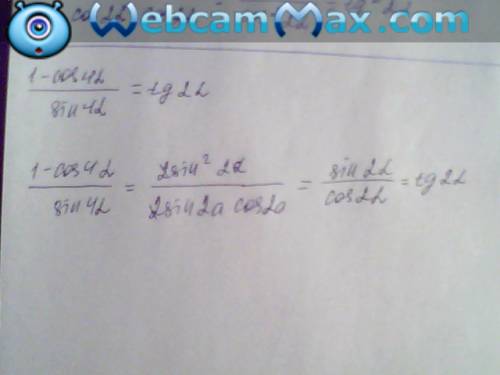 WebcamMax.com
1-cos4α / sin4α = tg2α
1-cos4α / sin4α = 2sin²2α / 2sin2α cos2α = sin2α / cos2α = tg2α